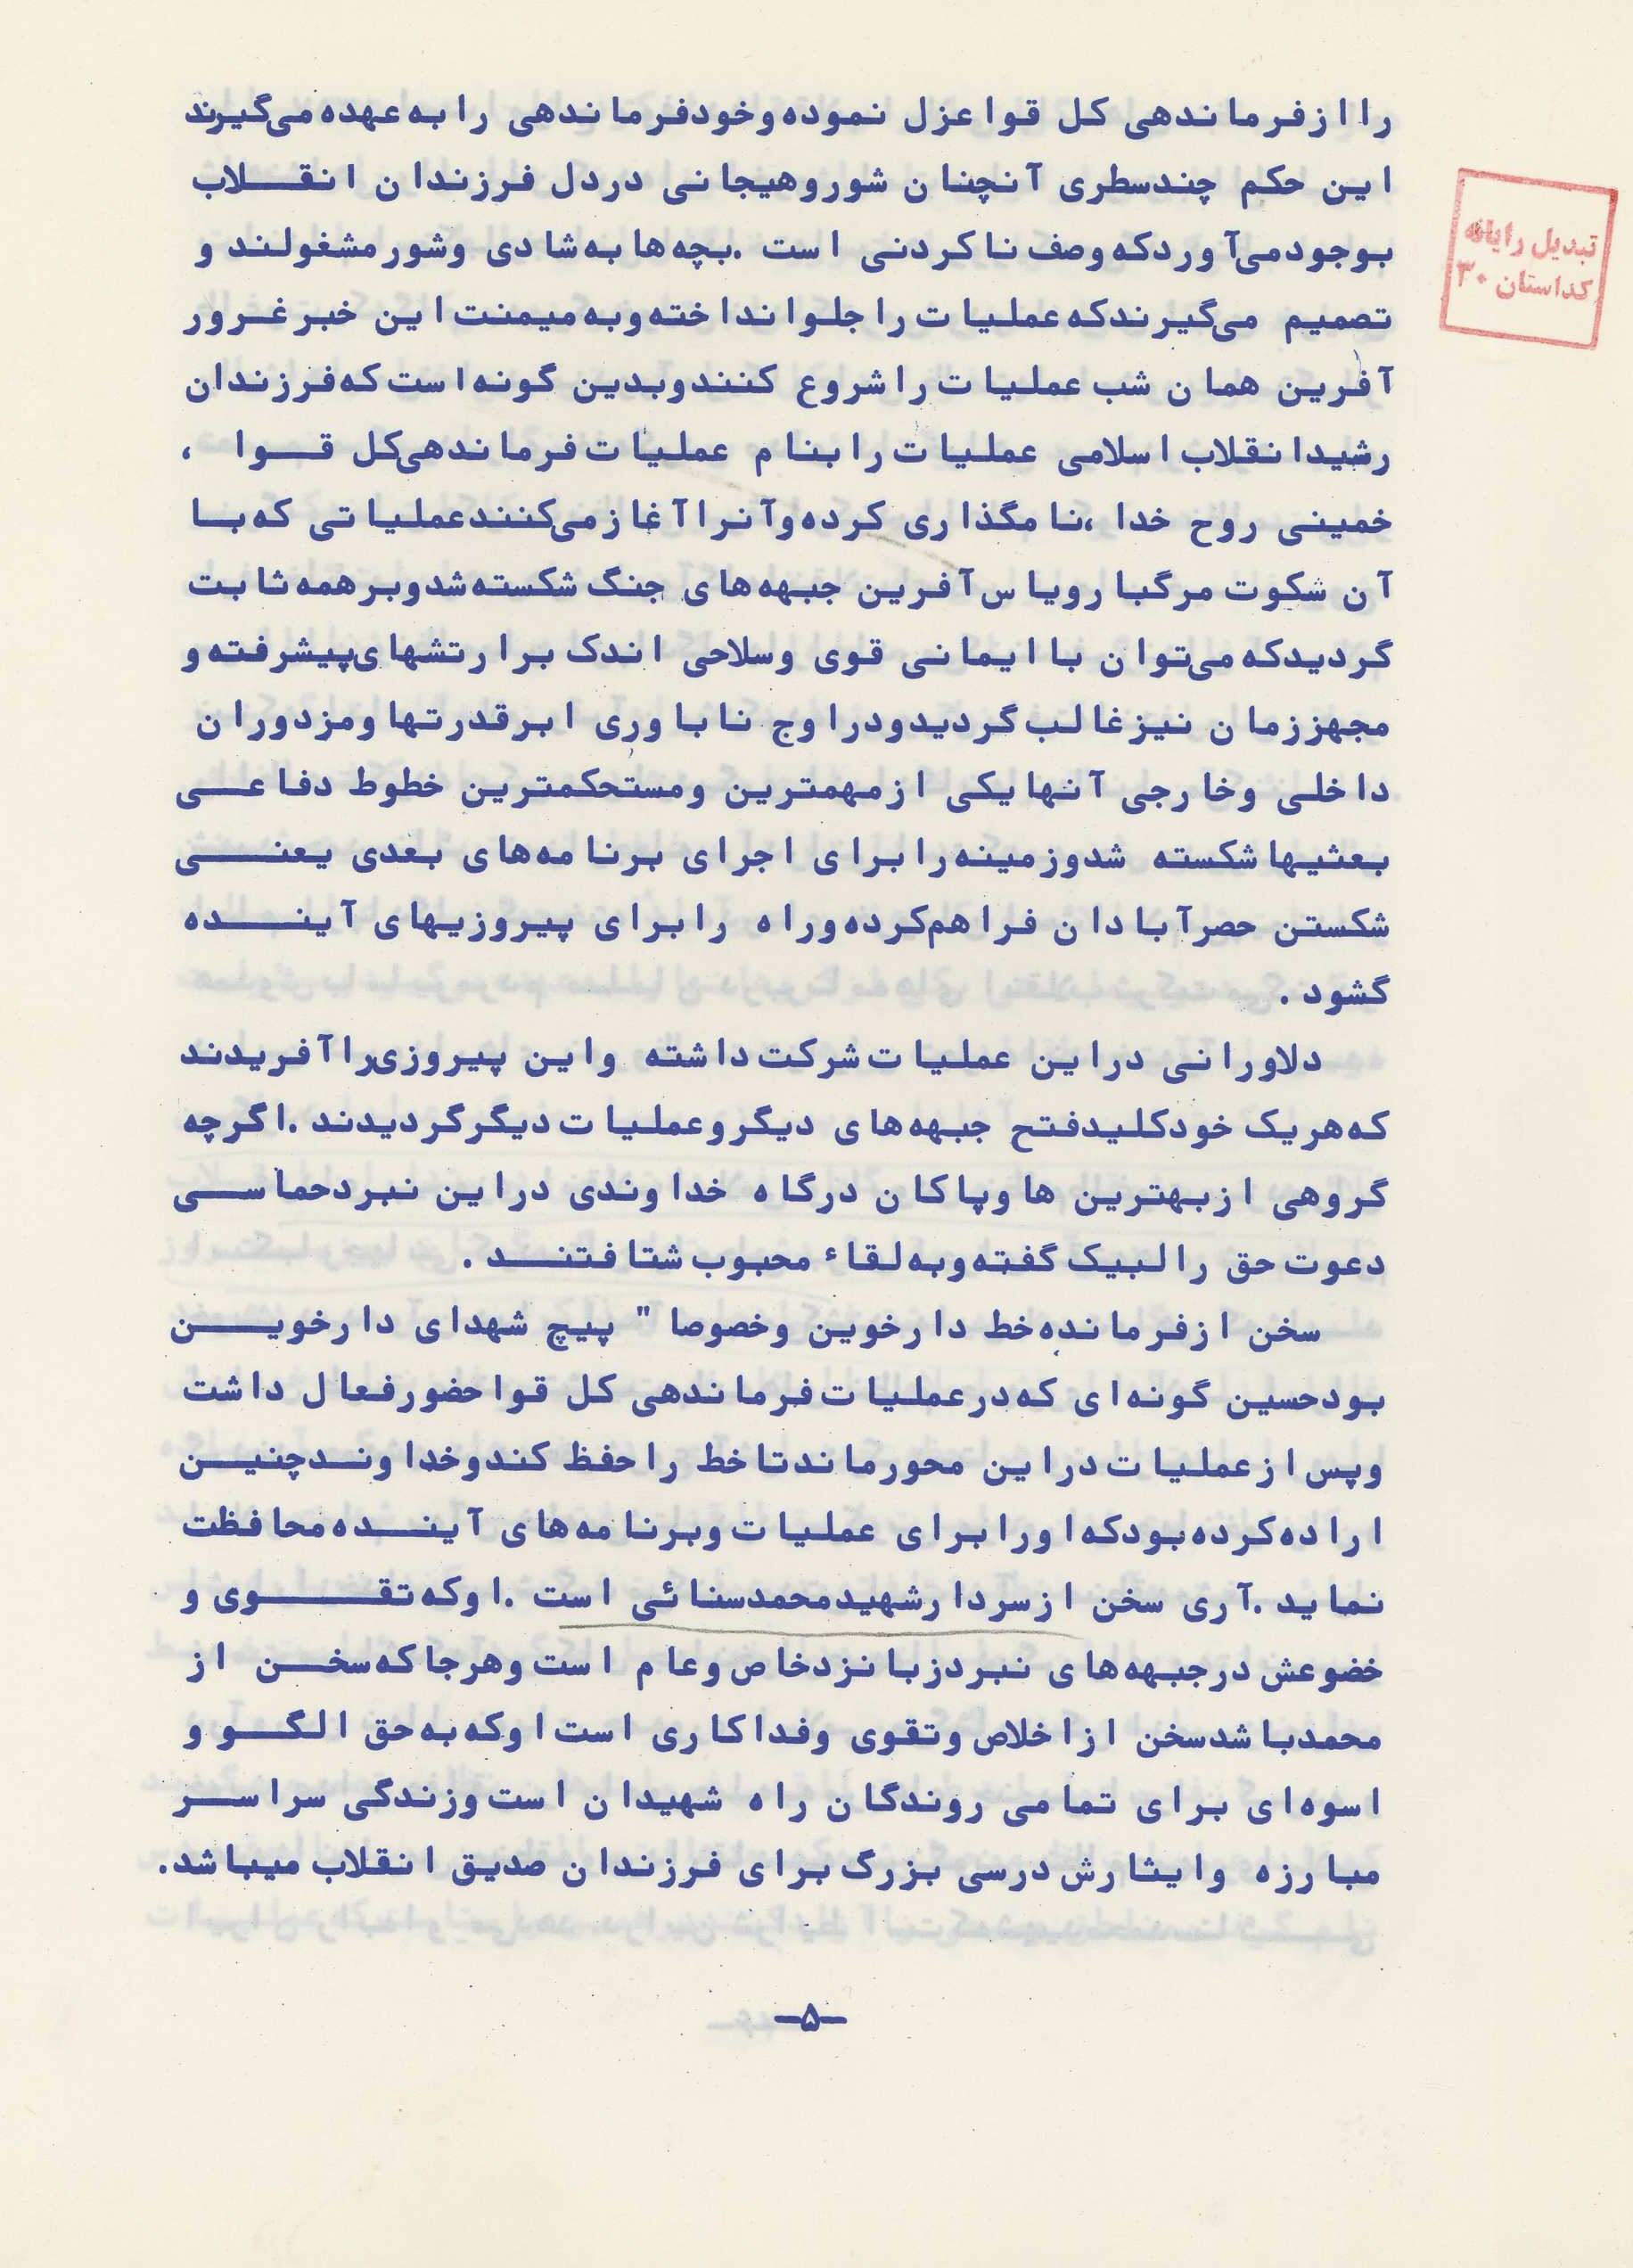 را از فرماندهی کل قوا عزل نموده و خود فرماندهی را به عهده می‌گیرند
این حکم چند سطری آنچنان شور و هیجانی در دل فرزندان انقلاب
بوجود می‌آورد که وصف ناکردنی است . بچه‌ها به شادی و شور مشغولند و
تصمیم می‌گیرند که عملیات را جلو انداخته و به میمنت این خبر غرور
آفرین همان شب عملیات را شروع کنند و بدین گونه است که فرزندان
رشید انقلاب اسلامی عملیات را بنام عملیات فرماندهی کل قوا ،
خمینی روح خدا ، نامگذاری کرده و آنرا آغاز می‌کنند عملیاتی که با
آن شکوت مرگبار و یاس آفرین جبهه‌های جنگ شکسته شد و بر همه ثابت
گردید که می‌توان با ایمانی قوی و سلاحی اندک بر ارتشهای پیشرفته و
مجهز زمان نیز غالب گردید و در اوج ناباوری ابر قدرتها و مزدوران
داخلی و خارجی آنها یکی از مهمترین و مستحکمترین خطوط دفاعی
بعثیها شکسته شد و زمینه را برای اجرای برنامه‌های بعدی یعنی
شکستن حصر آبادان فراهم کرده و راه را برای پیروزیهای آینده
گشود .
دلاورانی در این عملیات شرکت داشته و این پیروزی را آفریدند
که هر یک خود کلید فتح جبهه‌های دیگر و عملیات دیگر گردیدند . اگرچه
گروهی از بهترین ها و پاکان درگاه خداوندی در این نبرد حماسی
دعوت حق را لبیک گفته و به لقاء محبوب شتافتند .
سخن از فرمانده خط دارخوین و خصوصا " پیچ شهدای دارخوین
بود حسین گونه‌ای که در عملیات فرماندهی کل قوا حضور فعال داشت
و پس از عملیات در این محور ماند تا خط را حفظ کند و خداوند چنین
اراده کرده بود که او را برای عملیات و برنامه‌های آینده محافظت
نماید . آری سخن از سردار شهید محمد سنائی است . او که تقوی و
خضوعش در جبهه‌های نبرد زبانزد خاص و عام است و هر جا که سخن از
محمد باشد سخن از اخلاص و تقوی و فداکاری است او که به حق الگو و
اسوه‌ای برای تمامی روندگان راه شهیدان است و زندگی سراسر
مبارزه و ایثارش درسی بزرگ برای فرزندان صدیق انقلاب میباشد.
-۵-
تبدیل رایانه
کداستان ۳۰